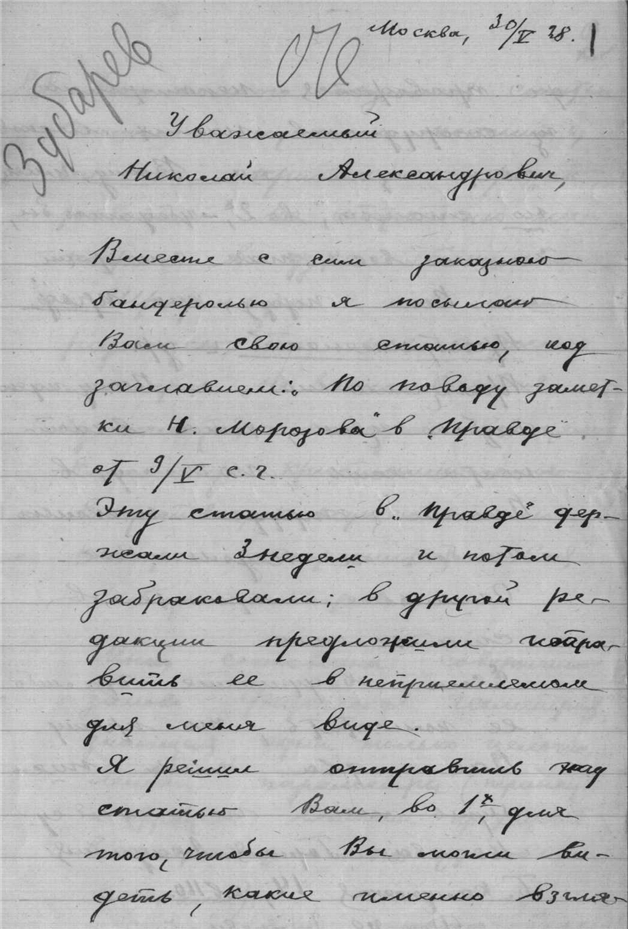 Москва, 30/V 28. 1
Зубарев
Уважаемый
Николай Александрович,
Вместе с сим заказною
бандеролью я посылаю
Вам свою статью, под
заглавием: „По поводу замет-
ки Н. Морозова" в „Правде"
от 9/V с. г.
Эту статью в „Правде" дер-
жали 3 недели и потом
забраковали; в другой ре-
дакции предложили исправ-
вить ее в неприемлемом
для меня виде.
Я решил отправить
статью Вам, во 1х, для
того, чтобы Вы могли ви-
деть, какие именно взгля-